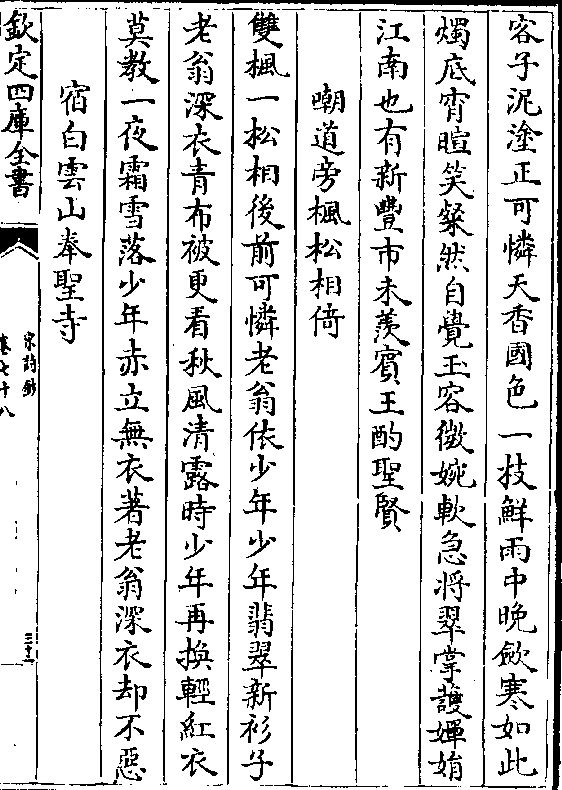 客子泥塗正可憐天香國色一枝鮮雨中晩斂寒如此
燭底宵暄笑粲然自覺玉容微婉軟急將翠掌護嬋娟
江南也有新豐市未羨賓王酌聖賢
嘲道旁楓松相倚
雙楓一松相後前可憐老翁依少年少年翡翠新衫子
老翁深衣青布被更看秋風清露時少年再換輕紅衣
莫教一夜霜雪落少年赤立無衣著老翁深衣却不惡
宿白雲山奉聖寺
欽定四庫全書
宋詩鈔
卷七十八
三十二